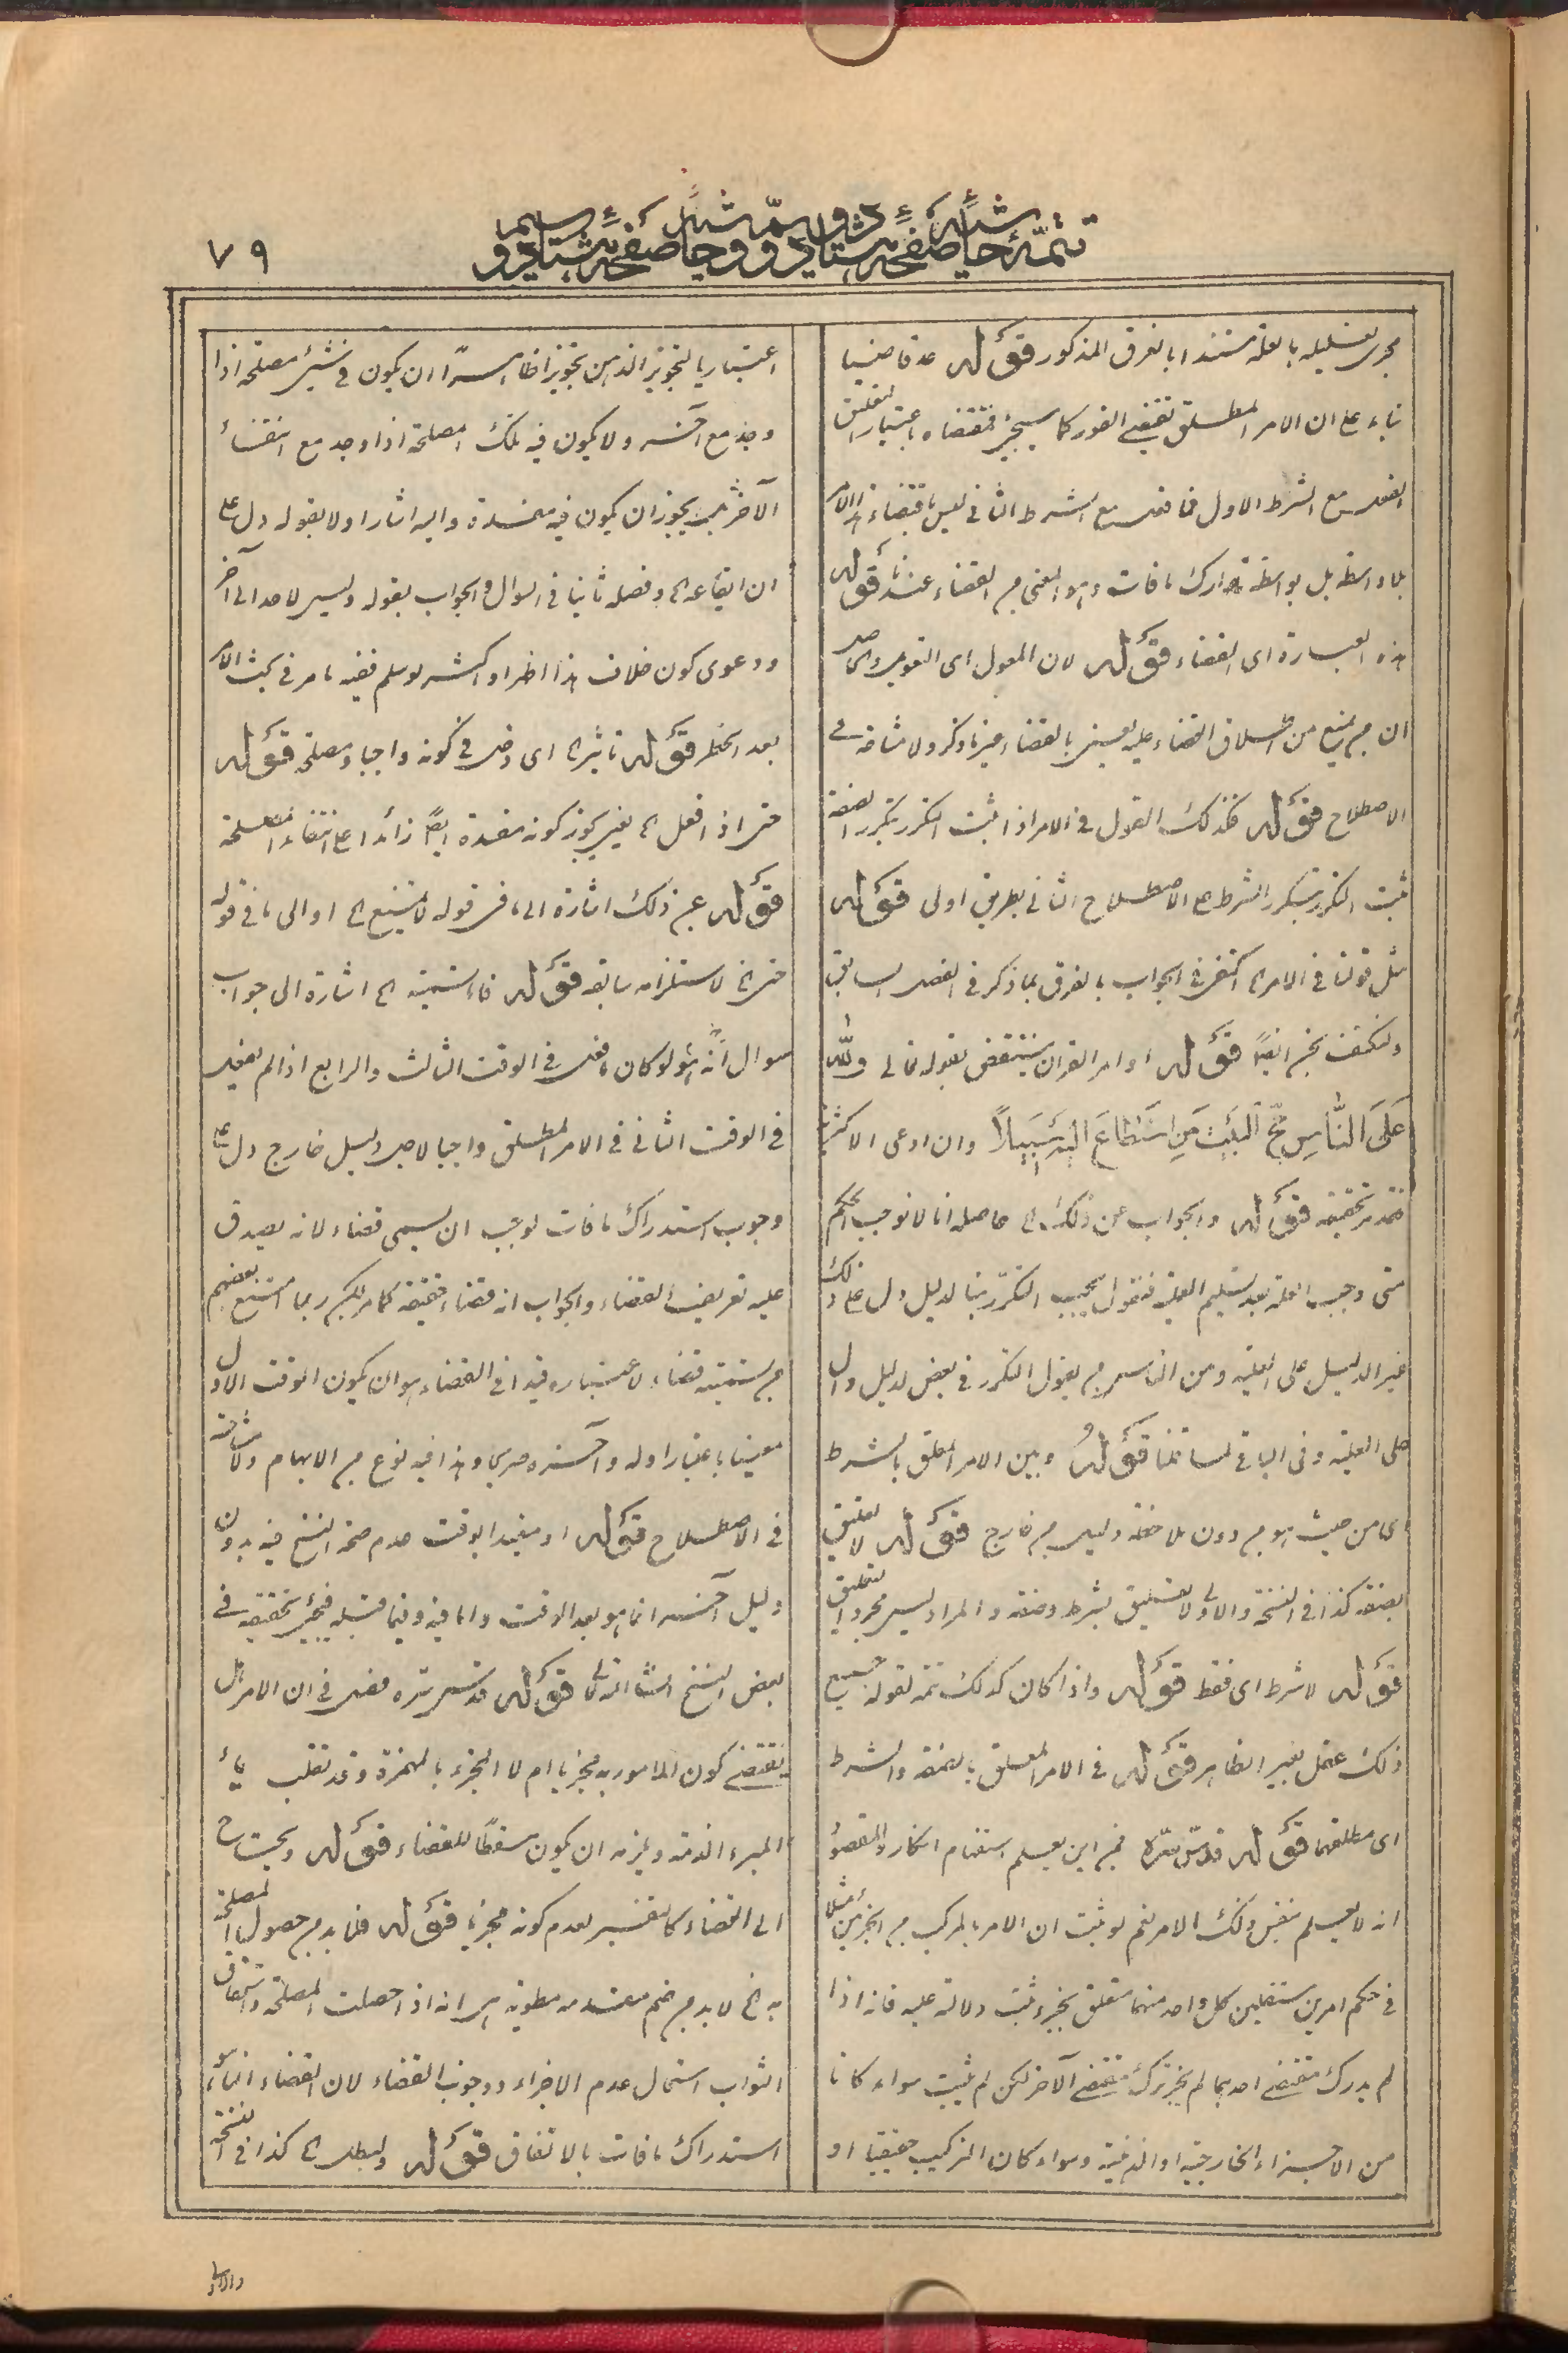 ٧٩
يجرى تعليله بالعلة مستندا بالفرق المذكور قوله عدة قاضيا
بناء على ان الامر المطلق يقتضى الفور كما سيجئ فمقتضاه باعتبار التعليق
الفعل مع الشرط الاول فما فعل مع الشرط الثانى ليس باقتضاء هذا الامر
بلا واسطة بل بواسطة تدارك ما فات وهو المعنى من القضاء عندنا قوله
هذه العبارة اى القضاء قوله لان المعول اى التعويل والحاصل
ان من يمنع من اطلاق القضاء عليه يعنى بالقضاء غير ما ذكر ولا مشاحة فى
الاصطلاح قوله فكذلك القول فى الامر اذا ثبت التكرر بتكرر الصفة
ثبت التكرر بتكرر الشرط على الاصطلاح الثانى بطريق اولى قوله
مثل قولنا فى الامر الخ اكتفى فى الجواب بالفرق بما ذكر فى الفصل السابق
ولنكتف نحن ايضاً قوله اوامر القران ينتقض بقوله تعالى ولله
عَلَى النَّاسِ حِجُّ الْبَيْتِ مَنِ اسْتَطاعَ اِلَيْهِ سَبِيلاً وان ادعى الاكثر
فقد مر تحقيقه قوله والجواب عن ذلك الخ حاصله انا لا نوجب الحكم
متى وجب العلة بعد تسليم العلية فنقول يجب التكرر بنا لدليل دل على ذلك
غير الدليل على العلية ومن الناس من يقول التكرر فى بعض لدليل دال
على العلية وفى الباقى لما قلنا قوله وبين الامر المعلق بالشرط
اى من حيث هو من دون ملاحظة دليل من خارج قوله لا تعليق
بصفة كذا فى النسخة والاولى لا تعليق بشرط وصفة والمراد ليس مجرد التعليق
قوله لا شرط اى فقط قوله واذا كان كذلك تتمة لقوله جميع
ذلك عقل بغير الظاهر قوله فى الامر المعلق بالصفة والشرط
اى مطلقهما قوله قدس سره فمن اين يعلم استفهام انكار والمقصود
انه لا يعلم بنفس ذلك الامر نعم لو ثبت ان الامر بالمركب من الجزئين مثلا
فى حكم امرين مستقلين كل واحد منهما متعلق بجزء ثبت دلالته عليه فانه اذا
لم يدرك مقتضى احدهما لم يجز ترك مقتضى الآخر لكن لم يثبت سواء كانا
من الاجزاء الخارجية او الذهنية وسواء كان التركيب حقيقيا او
اعتباريا لتجويز الذهن تجويزا ظاهرا ان يكون فى شئ مصلحة اذا
وجد مع آخر ولا يكون فيه تلك المصلحة اذا وجد مع انتفاء
الآخر بل يجوز ان يكون فيه مفسدة واليه اشار اولا بقوله دل على
ان ايقاعه الخ وفصله ثانيا فى السوال والجواب بقوله وليس لاحد الى آخره
ودعوى كون خلاف هذا اظهر او اكثر لو سلم ففيه ما مر فى بحث الامر
بعد الحظر قوله تاثير الخ اى دخل فى كونه واجبا ومصلحة قوله
حتى اذا فعل الخ يعنى يجوز كونه مفسدة ايضاً زائدا على انتفاء المصلحة
قوله عن ذلك اشارة الى ما فى قوله لا يمتنع الخ او الى ما فى قوله
حتى الخ لاستلزامه سابقه قوله فاما تسميته الخ اشارة الى جواب
سوال انه لو كان ما فعل فى الوقت الثالث والرابع اذا لم يفعل
فى الوقت الثانى فى الامر المطلق واجبا لاجل دليل خارج دل على
وجوب استدراك ما فات لوجب ان يسمى قضاء لانه يصدق
عليه تعريف القضاء والجواب انه قضاء حقيقة كما مر لكن ربما امتنع بعضهم
من تسميته قضاء لاعتباره قيدا فى القضاء هو ان يكون الوقت الاول
معينا باعتبار اوله وآخره صريحا وهذا فيه نوع من الابهام ولا مشاحة
فى الاصطلاح قوله او مقيدا بوقت عدم صحة النسخ فيه بدون
دليل آخر انما هو بعد الوقت واما فيه وفيما قبله فيجئ تحقيقه فى
بعض النسخ انشاء الله تعالى قوله قدس سره فصل فى ان الامر هل
يقتضى كون المامور به مجزيا ام لا المجزء بالهمزة وقد تقلب ياء
المبرء الذمة ويلزمه ان يكون مسقطا للقضاء قوله ويحتاج
الى القضاء كالتفسير لعدم كونه مجزيا قوله فلابد من حصول المصلحة
به الخ لا بد من ضم مقدمة مطوية هى انه اذا حصلت المصلحة واستحقاق
الثواب استحال عدم الاجزاء ووجوب القضاء لان القضاء انما هو
استدراك ما فات بالاتفاق قوله وليطلب الخ كذا فى النسخة